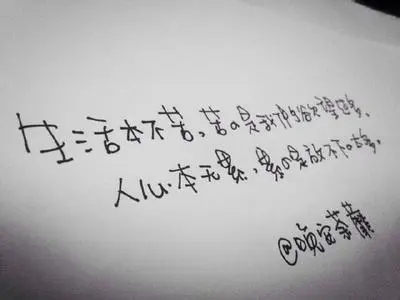 生活本不苦、苦の是我们的欲望过多、
人心本无累、累の是放不下の太多、
@晚安荼蘼